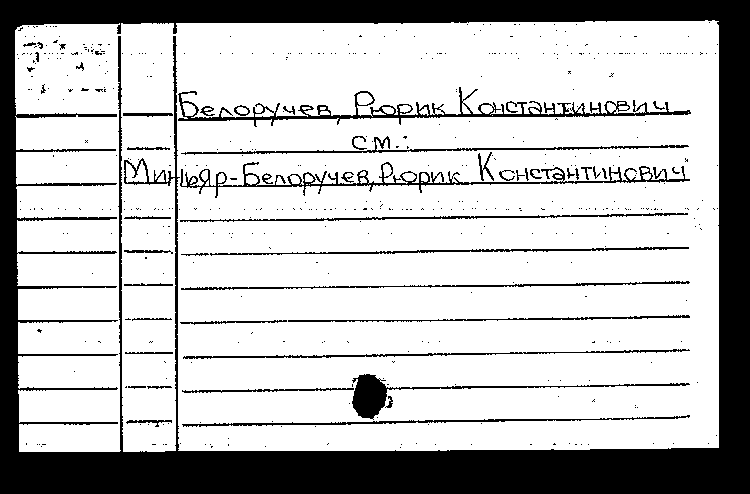 Белоручев, Рюрик Константинович
см.:
Миньяр-Белоручев, Рюрик Константинович